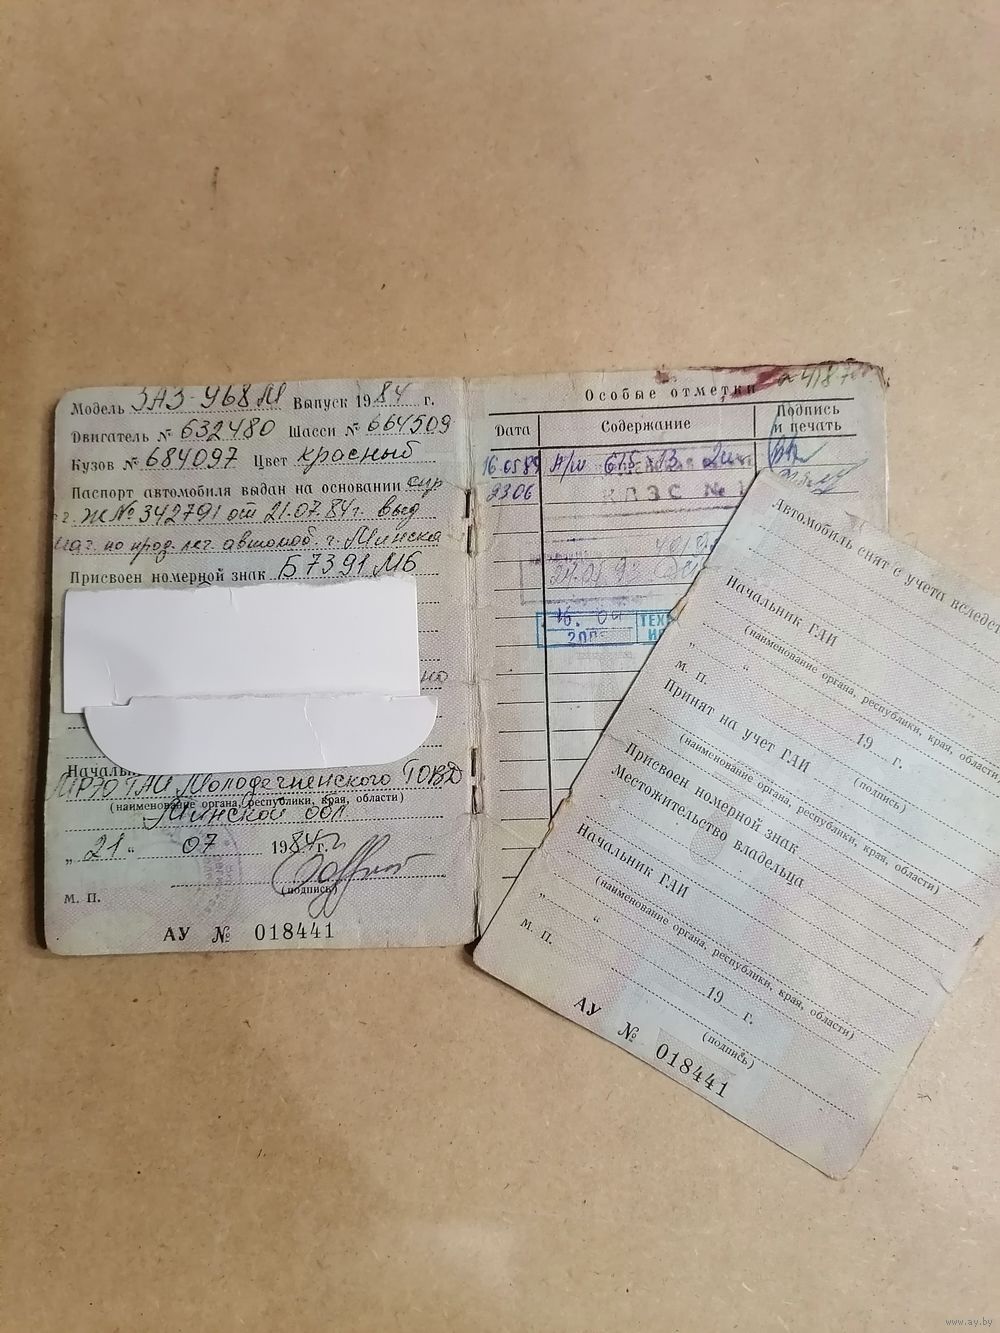 Модель ЗАЗ-968М Выпуск 1984 г.
Двигатель № 632480 Шасси № 664509
Кузов № 684097 Цвет красный
Паспорт автомобиля выдан на основании спр
г. Ж № 342791 от 21.07.84г. выд
маг. по прод. лег. автомоб. г. Минска
Присвоен номерной знак Б7391МБ
но
Началь
МРЭО ГАИ Молодечненского ГОВД
(наименование органа, республики, края, области)
Минской обл
„ 21 “ 07 1984 г.
(подпись)
м. п.
АУ № 018441
Особые отметки
Дата Содержание Подпись и печать
16.05.89 А/ш 615-13 2шт
23.06 КПЗС №
16. 04 ТЕХ
200
Автомобиль снят с учета вследст
Начальник ГАИ
(наименование органа, республики, края, области)
„ “ 19 г.
м. п.
(подпись)
Принят на учет ГАИ
(наименование органа, республики, края, области)
Присвоен номерной знак
Местожительство владельца
Начальник ГАИ
(наименование органа, республики, края, области)
„ “ 19 г.
м. п.
(подпись)
АУ № 018441
www.ay.by